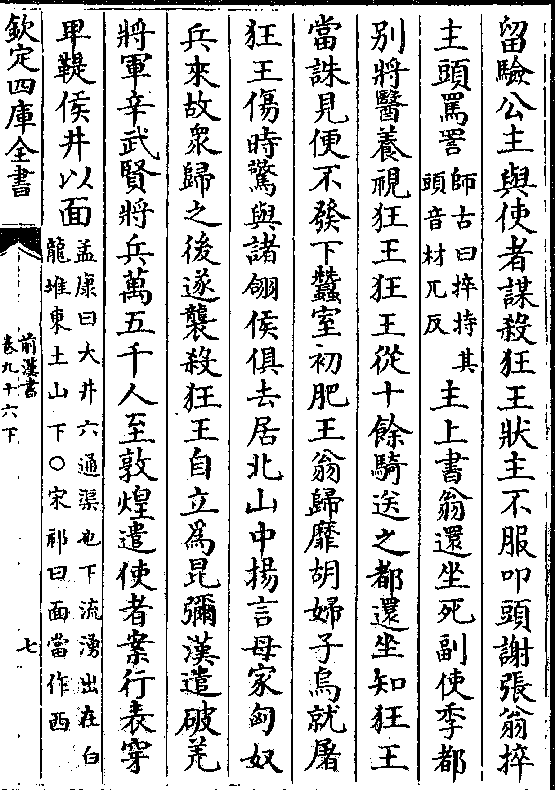 留驗公主與使者謀殺狂王狀主不服叩頭謝張翁捽
主頭罵詈師古曰捽持其
頭音材兀反主上書翁還坐死副使季都
别將醫養視狂王狂王從十餘騎送之都還坐知狂王
當誅見便不發下蠶室初肥王翁歸靡胡婦子烏就屠
狂王傷時驚與諸翎侯俱去居北山中揚言母家匈奴
兵來故衆歸之後遂襲殺狂王自立為昆彌漢遣破羌
將軍辛武賢將兵萬五千人至敦煌遣使者案行表穿
卑鞮侯井以面孟康曰大井六通渠也下流湧出在白
龍堆東土山下○宋祁曰面當作西
欽定四庫全書
前漢書
卷九十六下
七